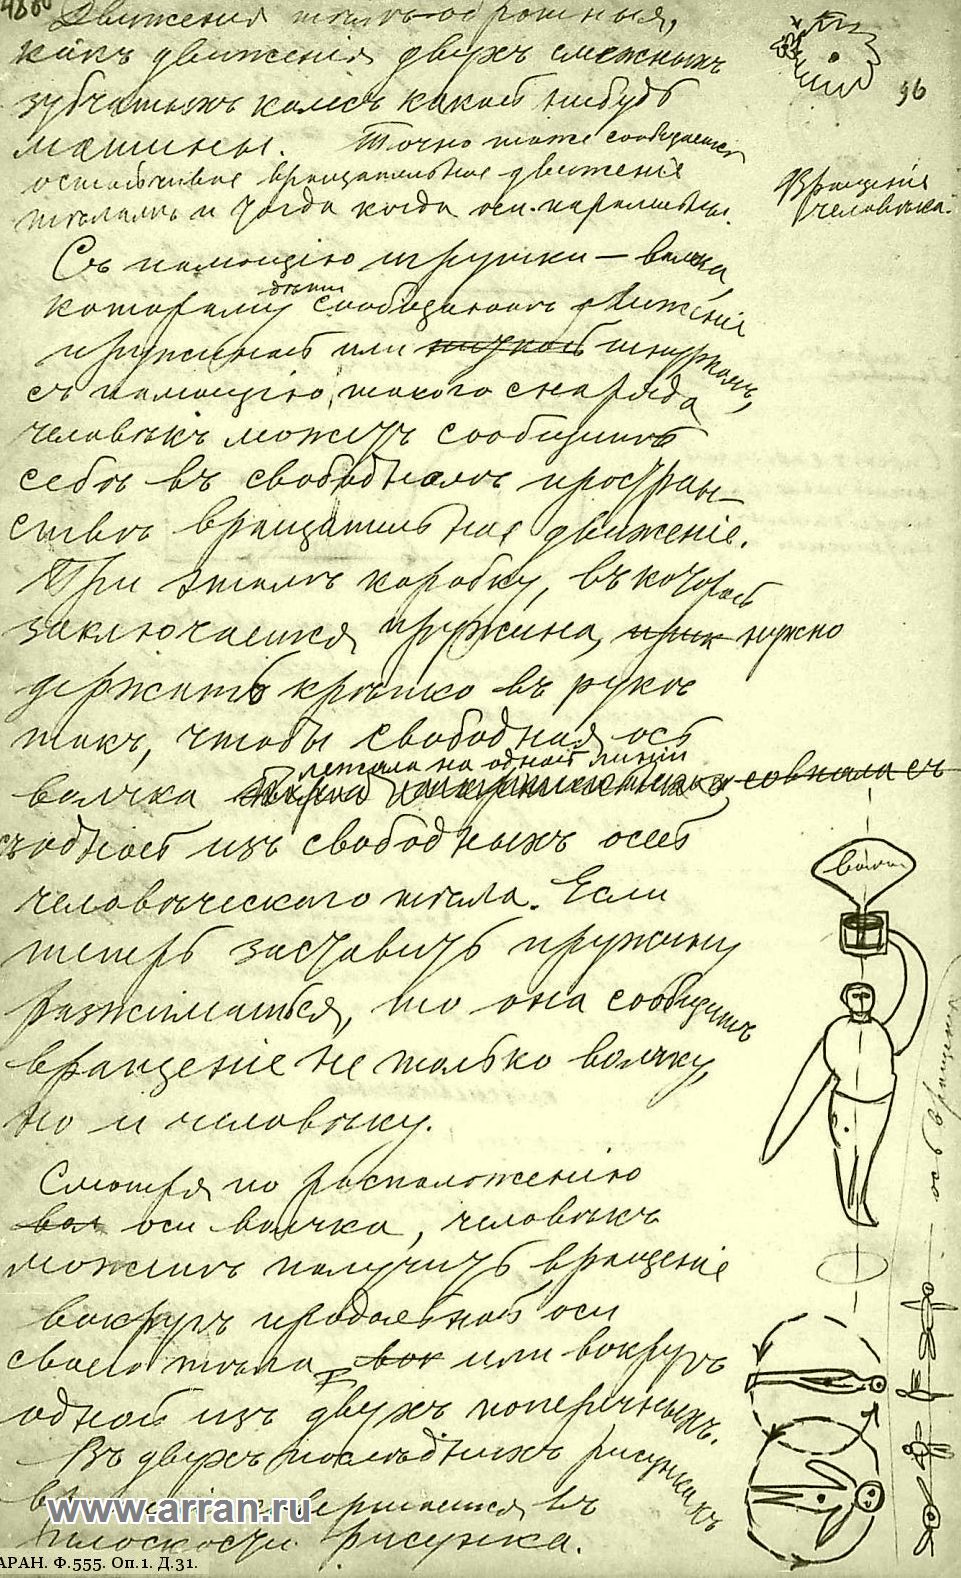 96
Движенія тѣлъ обратныя,
какъ движенія двухъ смежныхъ
зубчатыхъ колесъ какой нибудь
машины. Точно также сообщается
устойчивое вращательное движеніе
тѣламъ и тогда когда оси параллельны.
Вращеніе
человѣка.
Съ помощію игрушки — волчка,
которому дѣти сообщаютъ движеніе
пружиной или шнуркомъ,
съ помощію такого снаряда
человѣкъ можетъ сообщить
себѣ въ свободномъ простран-
ствѣ вращательное движеніе.
При этомъ коробку, въ которой
заключается пружина, нужно
держать крѣпко въ рукѣ
такъ, чтобы свободная ось
лежала на одной линіи
волчка совпала съ
съ одной изъ свободныхъ осей
человѣческаго тѣла. Если
теперь заставить пружину
разжиматься, то она сообщитъ
вращеніе не только волчку,
но и человѣку.
Смотря по расположенію
вол оси волчка, человѣкъ
можетъ получить вращеніе
вокругъ продольной оси
своего тѣла, вок или вокругъ
одной изъ двухъ поперечныхъ.
Въ двухъ послѣднихъ рисункахъ
въ
плоскости рисунка.
волч
ось вращенія
www.arran.ru
АРАН. Ф.555. Оп.1. Д.31.